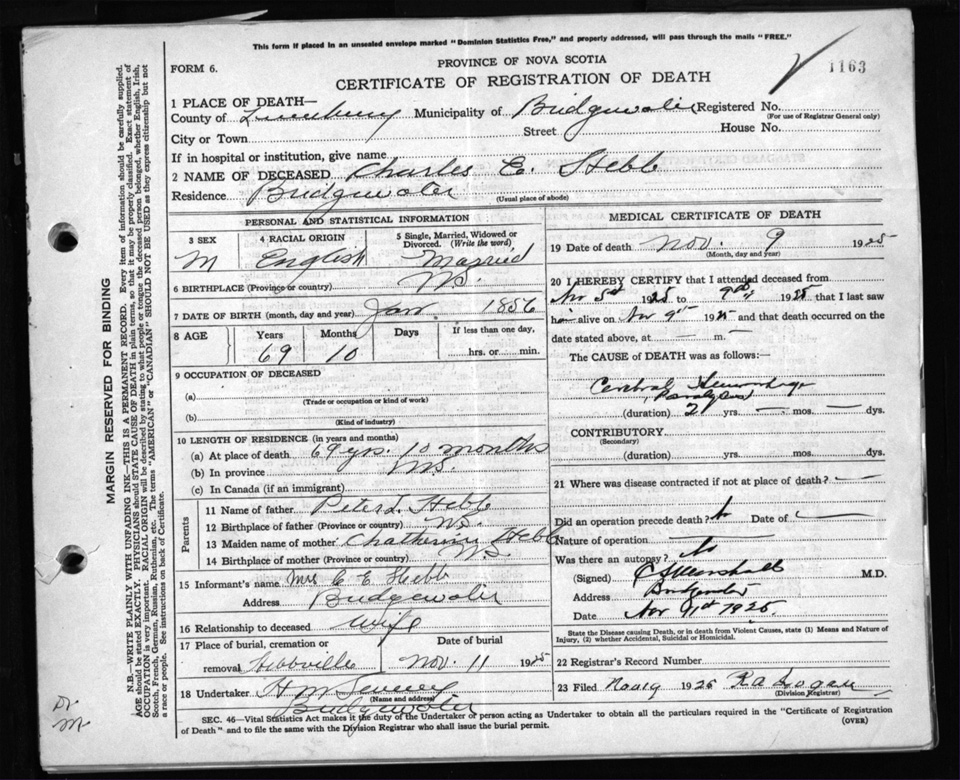 This form if placed in an unsealed envelope marked "Dominion Statistics Free," and properly addressed, will pass through the mails "FREE."
FORM 6.
PROVINCE OF NOVA SCOTIA
1163
CERTIFICATE OF REGISTRATION OF DEATH
1 PLACE OF DEATH—
County of Lunenburg Municipality of Bridgewater Registered No.
(For use of Registrar General only)
City or Town Street House No.
If in hospital or institution, give name
2 NAME OF DECEASED Charles E. Hebb
Residence Bridgewater
(Usual place of abode)
PERSONAL AND STATISTICAL INFORMATION
3 SEX 4 RACIAL ORIGIN 5 Single, Married, Widowed or Divorced. (Write the word)
M English Married
6 BIRTHPLACE (Province or country) N.S.
7 DATE OF BIRTH (month, day and year) Jan. 1856
8 AGE Years Months Days If less than one day,
69 10 hrs. or min.
9 OCCUPATION OF DECEASED
(a)
(Trade or occupation or kind of work)
(b)
(Kind of industry)
10 LENGTH OF RESIDENCE (in years and months)
(a) At place of death 69 yrs. 10 months
(b) In province N.S.
(c) In Canada (if an immigrant)
Parents
11 Name of father Peter L. Hebb
12 Birthplace of father (Province or country) N.S.
13 Maiden name of mother Chatherine Hebb
14 Birthplace of mother (Province or country) N.S.
15 Informant's name Mrs C E Hebb
Address Bridgewater
16 Relationship to deceased Wife
17 Place of burial, cremation or Date of burial
removal Hebbville Nov. 11 1925
18 Undertaker H M
(Name and address)
Bridgewater
MEDICAL CERTIFICATE OF DEATH
19 Date of death Nov. 9 1925
(Month, day and year)
20 I HEREBY CERTIFY that I attended deceased from
Nov 5th 1925 to 9th 1925 that I last saw
him alive on Nov 9th 1925 and that death occurred on the
date stated above, at — m.
The CAUSE of DEATH was as follows:
Cerebral Hemorrhage
Paralysis
(duration) 2 yrs. — mos. — dys.
CONTRIBUTORY
(Secondary)
(duration) yrs. mos. dys.
21 Where was disease contracted if not at place of death? —
Did an operation precede death? No Date of —
Nature of operation
Was there an autopsy? No
(Signed) C S Marshall M.D.
Address Bridgewater
Date Nov 1925
State the Disease causing Death, or in death from Violent Causes, state (1) Means and Nature of
Injury, (2) whether Accidental, Suicidal or Homicidal.
22 Registrar's Record Number
23 Filed Nov 19 1925 R A Logan
(Division Registrar)
SEC. 46—Vital Statistics Act makes it the duty of the Undertaker or person acting as Undertaker to obtain all the particulars required in the "Certificate of Registration
of Death" and to file the same with the Division Registrar who shall issue the burial permit.
(OVER)
MARGIN RESERVED FOR BINDING
N.B.—WRITE PLAINLY WITH UNFADING INK—THIS IS A PERMANENT RECORD. Every item of information should be carefully supplied.
AGE should be stated EXACTLY. PHYSICIANS should STATE CAUSE OF DEATH in plain terms, so that it may be properly classified. Exact statement of
OCCUPATION is very important. RACIAL ORIGIN will be described by stating to what people or tongue the deceased person belonged, whether English, Irish,
Scotch, French, German, Russian, Ruthenian, etc. The terms "AMERICAN" or "CANADIAN" SHOULD NOT BE USED as they express citizenship but not
a race or people. See instructions on back of Certificate.